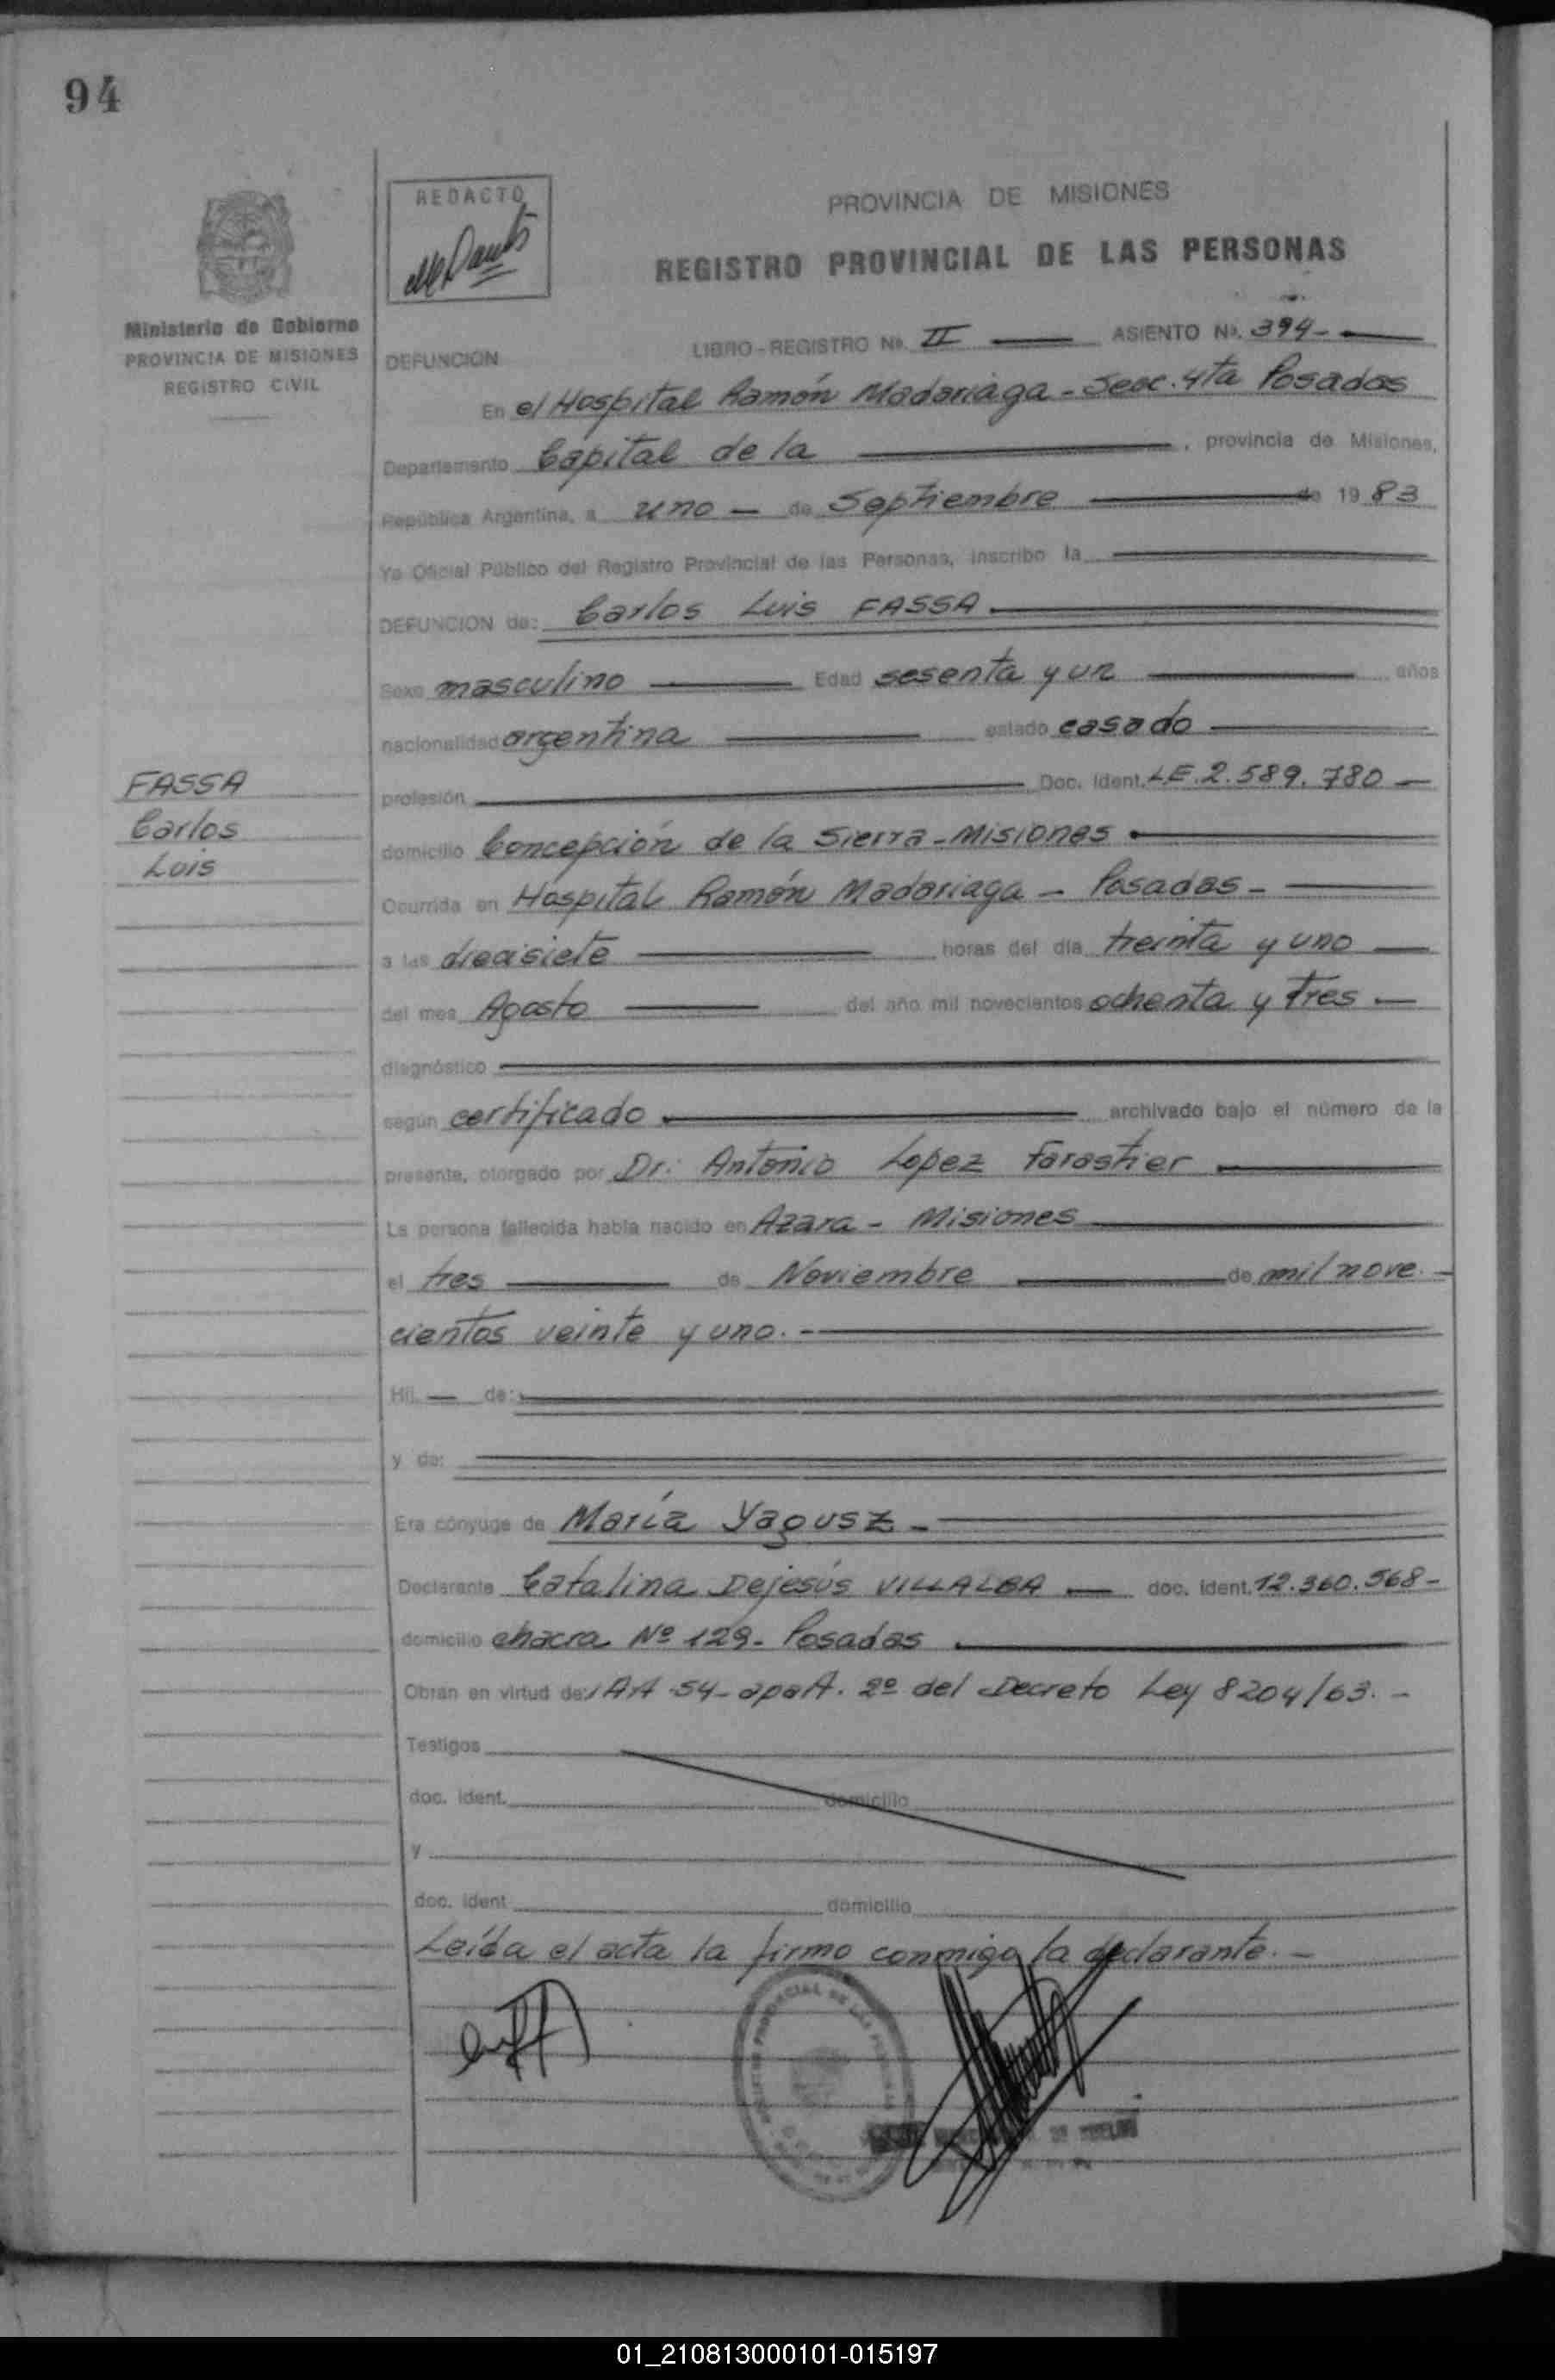 94
REDACTO
PROVINCIA DE MISIONES
REGISTRO PROVINCIAL DE LAS PERSONAS
Ministerio de Gobierno
PROVINCIA DE MISIONES
REGISTRO CIVIL
DEFUNCION
LIBRO-REGISTRO Nº. II ASIENTO Nº. 394-
En el Hospital Ramón Madariaga - Secc. 4ta Posadas
Departamento Capital de la , provincia de Misiones,
República Argentina, a uno - de Septiembre de 1983
Yo Oficial Público del Registro Provincial de las Personas, inscribo la
DEFUNCION de: Carlos Luis FASSA
Sexo masculino Edad sesenta y un años
nacionalidad argentina estado casado
FASSA
Carlos
Luis
profesión Doc. Ident. LE.2.589.780 -
domicilio Concepción de la Sierra - Misiones
Ocurrida en Hospital Ramón Madariaga - Posadas -
a las diecisiete horas del día treinta y uno
del mes Agosto del año mil novecientos ochenta y tres -
diagnóstico
según certificado archivado bajo el número de la
presente, otorgado por Dr. Antonio Lopez Forastier
La persona fallecida había nacido en Azara - Misiones
el tres de Noviembre de mil nove -
cientos veinte y uno. -
Hij - de:
y de:
Era cónyuge de María Yagusz -
Declarante Catalina Dejesús VILLALBA doc. ident. 12.360.568 -
domicilio chacra Nº 129 - Posadas
Obran en virtud de: Art 54 - apart. 2º del Decreto Ley 8204/63. -
Testigos
doc. ident. domicilio
y
doc. ident domicilio
Leída el acta la firmo conmigo la declarante. -
01_210813000101-015197